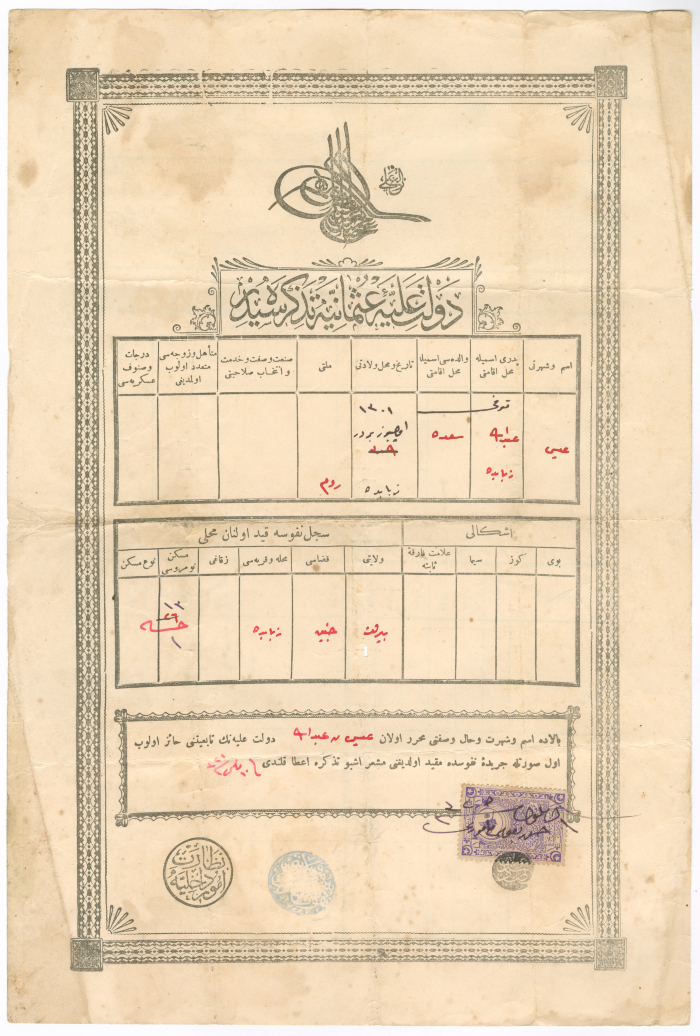 دولت علیۀ عثمانیه تذکره سیدر
اسم و شهرتی
پدری اسمیله محل اقامتی
والده سی اسمیله محل اقامتی
تاریخ و محل ولادتی
ملتی
صنعت و صفت و خدمت و انتخاب صلاحیتی
متأهل و زوجه سی متعدد اولوب اولمدیغی
درجات و صنوف عسکریه سی
عیسی
متوفی
عبدالله
زبابده
سعده
١٣٠١
زبابده
روم
اشکالی
سجل نفوسه قید اولنان محلی
بوی
کوز
سیما
علامت فارقۀ ثابته
ولایتی
قضاسی
محله و قریه سی
زقاغی
مسکن نومروسی
نوع مسکن
بیروت
جنین
زبابده
١٣
٢٦
خانه
١
بالاده اسم و شهرت و حال و صفتی محرر اولان عیسی بن عبدالله دولت علیه نك تابعیتنی حائز اولوب
اول صورتله جریدۀ نفوسده مقید اولدیغنی مشعر اشبو تذکره اعطا قلندی
نظارت امور داخلیه